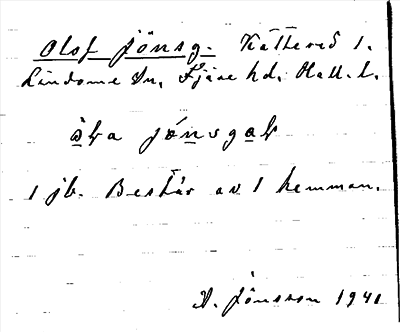 Olof Jönsg. Kättered 1.
Lindome Sn, Fjäre hd, Hall. l.
jónsgaḷ
1 jb. Består av 1 hemman.
A. Jönsson 1941